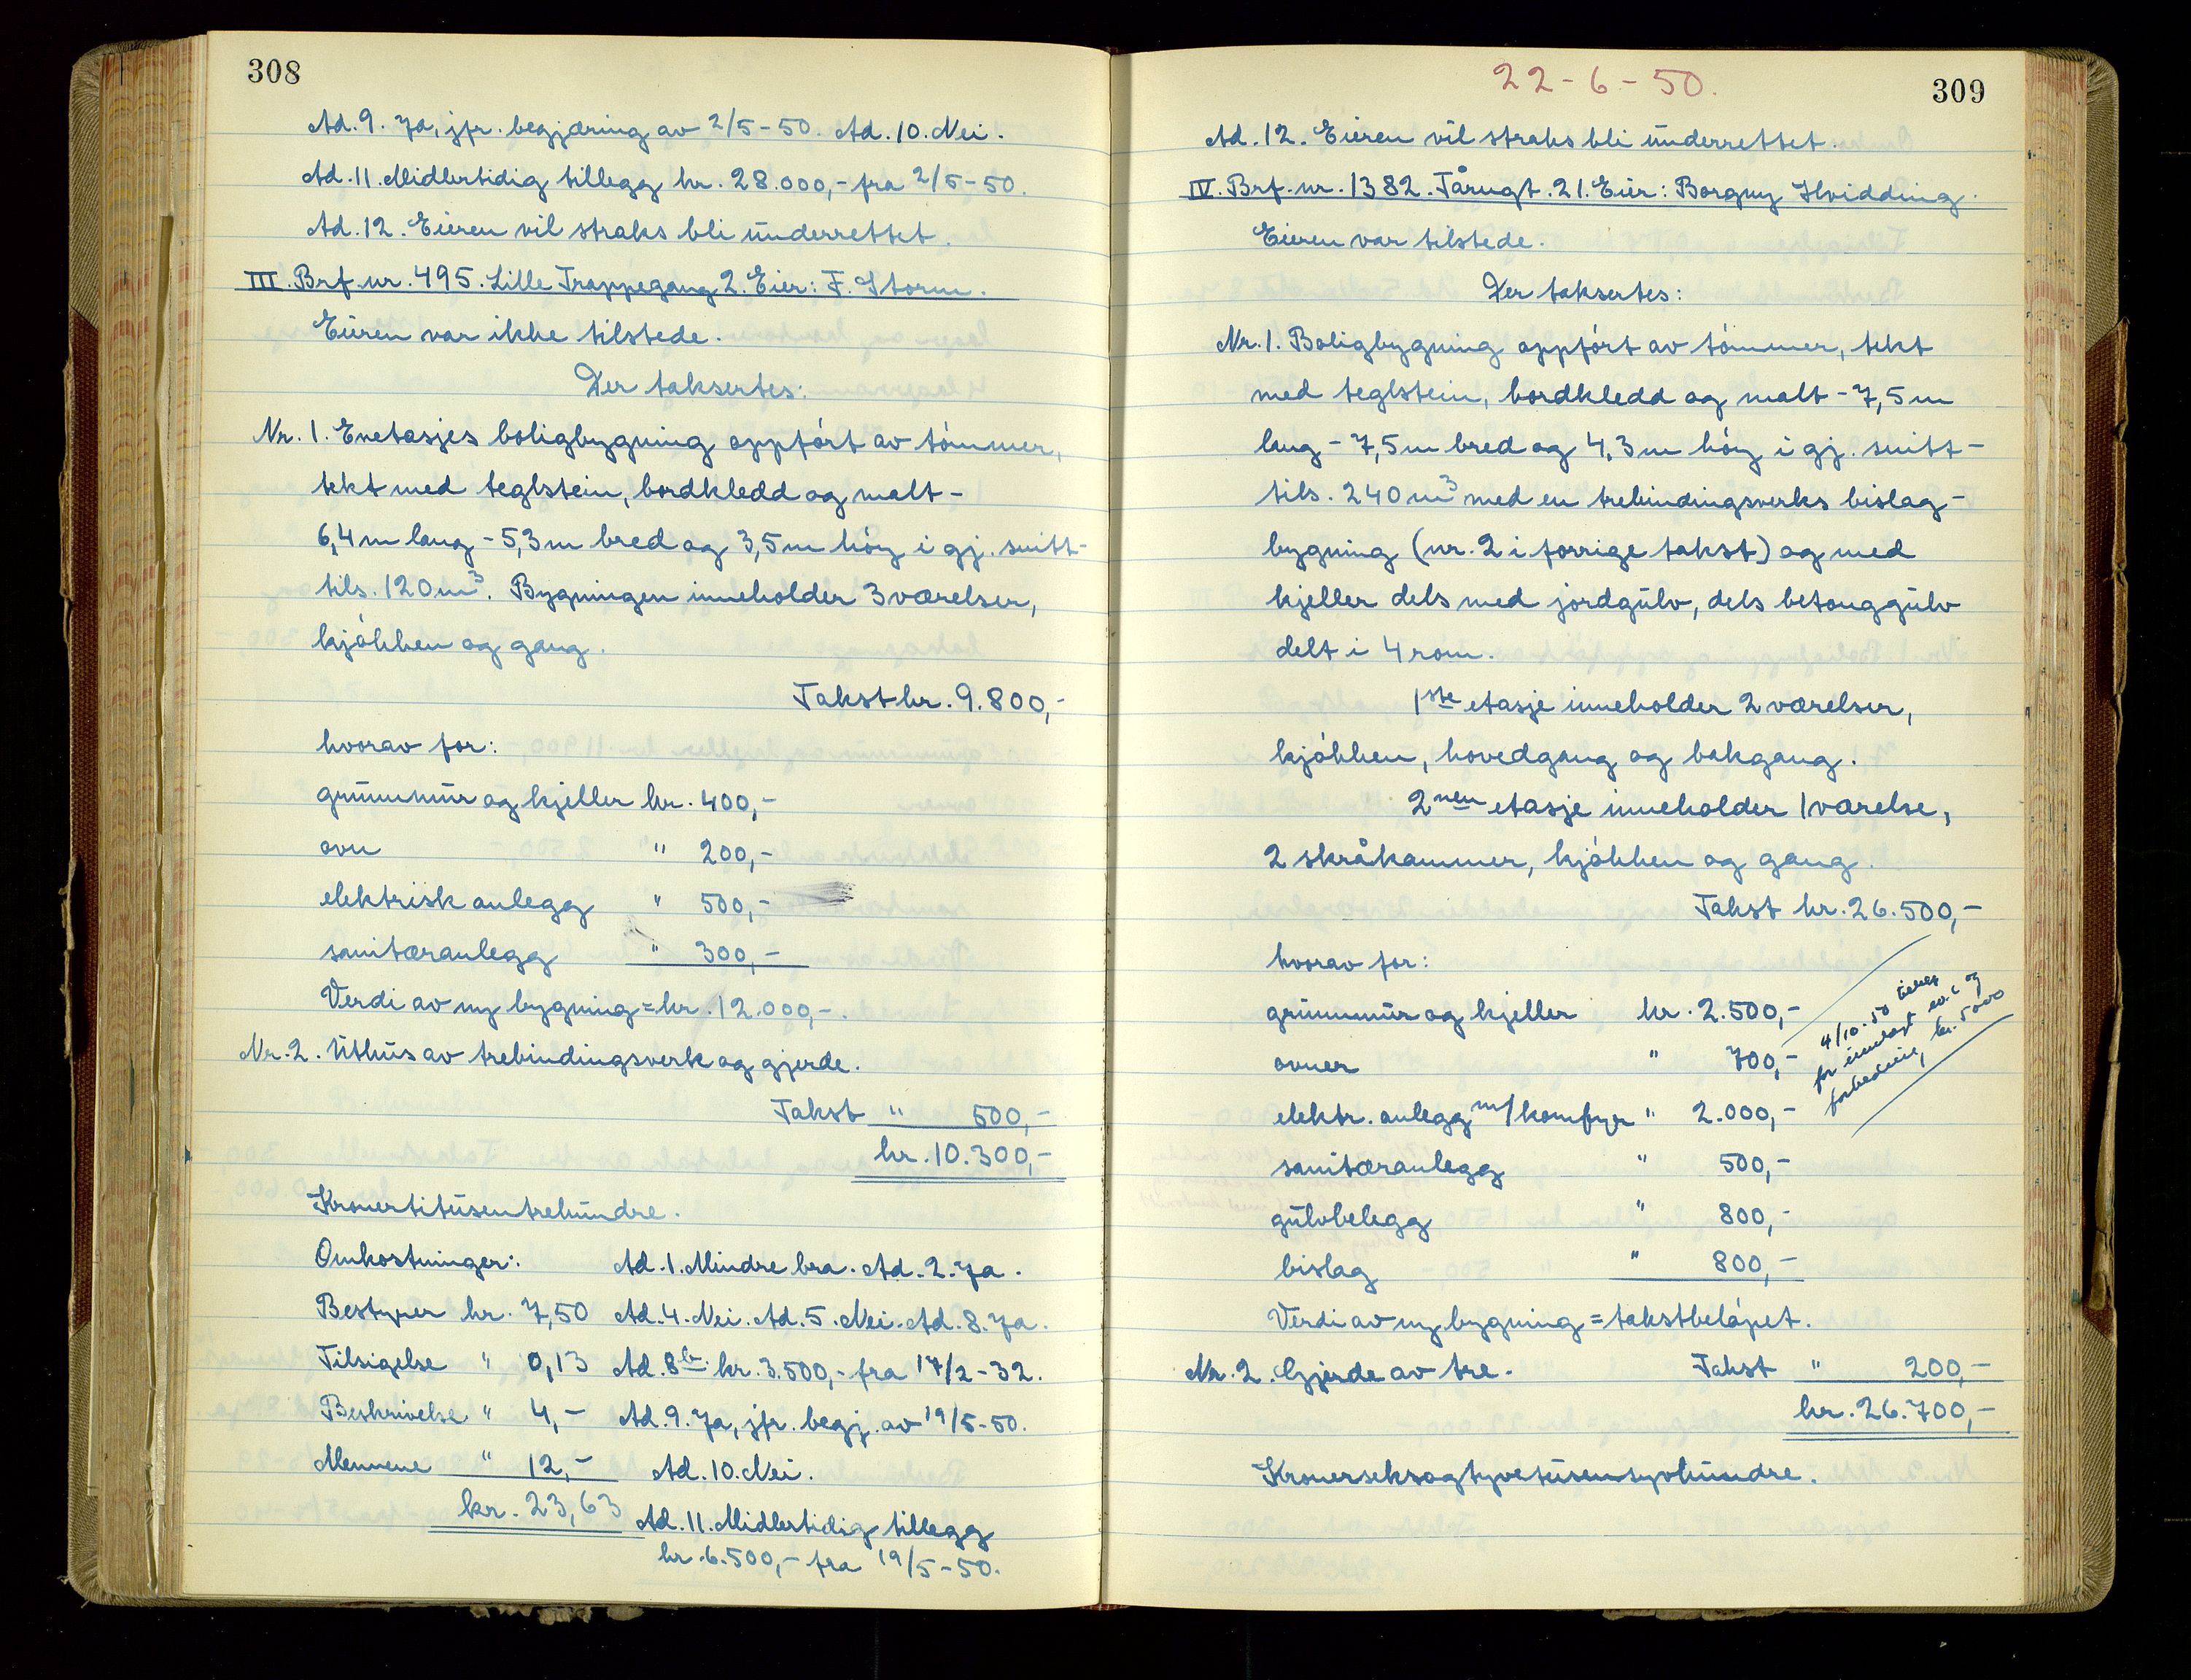 308
Ad. 9. Ja, jfr. begjæring av 2/5-50. Ad. 10. Nei.
Ad. 11. Midlertidig tillegg kr. 28.000,- fra 2/5-50.
Ad. 12. Eieren vil straks bli underrettet.
III. Brf. nr. 495. Lille Trappegang 2. Eier: F. Storm.
Eieren var ikke tilstede.
Der taksertes:
Nr. 1. Enetasjes boligbygning oppført av tømmer,
tekt med teglstein, bordkledd og malt -
6,4 m lang - 5,3 m bred og 3,5 m høy i gj. snitt -
tils. 120 m3. Bygningen inneholder 3 værelser,
kjøkken og gang.
Takst kr. 9.800,-
hvorav for:
grunnmur og kjeller kr. 400,-
ovn " 200,-
elektrisk anlegg " 500,-
sanitæranlegg " 300,-
Verdi av ny bygning = kr. 12.000,-.
Nr. 2. Uthus av trebindingsverk og gjerde.
Takst " 500,-
kr. 10.300,-
Kronertitusentrehundre.
Omkostninger: Ad. 1. Mindre bra. Ad. 2. Ja.
Bestyrer kr. 7,50 Ad. 4. Nei. Ad. 5. Nei. Ad. 8. Ja.
Tilsigelse " 0,13 Ad. 8b. kr. 3.500,- fra 17/2-32.
Beskrivelse " 4,- Ad. 9. Ja, jfr. begj. av 19/5-50.
Mennene " 12,- Ad. 10. Nei.
kr. 23,63 Ad. 11. Midlertidig tillegg
kr. 6.500,- fra 19/5-50.
22-6-50.
309
Ad. 12. Eieren vil straks bli underrettet.
IV. Brf. nr. 1382. Tårngt. 21. Eier: Borgny Hvidding.
Eieren var tilstede.
Der taksertes:
Nr. 1. Boligbygning oppført av tømmer, tekt
med teglstein, bordkledd og malt - 7,5 m
lang - 7,5 m bred og 4,3 m høy i gj. snitt -
tils. 240 m3 med en trebindingsverks bislag-
bygning (nr. 2 i forrige takst) og med
kjeller dels med jordgulv, dels betonggulv
delt i 4 rom.
1ste etasje inneholder 2 værelser,
kjøkken, hovedgang og bakgang.
2nen etasje inneholder 1 værelse,
2 skråkammer, kjøkken og gang.
Takst kr. 26.500,-
hvorav for:
grunnmur og kjeller kr. 2.500,-
ovner " 700,-
elektr. anlegg m/komfyr " 2.000,-
sanitæranlegg " 500,-
gulvbelegg " 800,-
bislag " 800,-
4/10-50 tillegg
for innlagt w.c og
forbedring, kr. 5000
Verdi av ny bygning = takstbeløpet.
Nr. 2. Gjerde av tre. Takst " 200,-
kr. 26.700,-
Kronerseksogtyvetusensyvhundre.